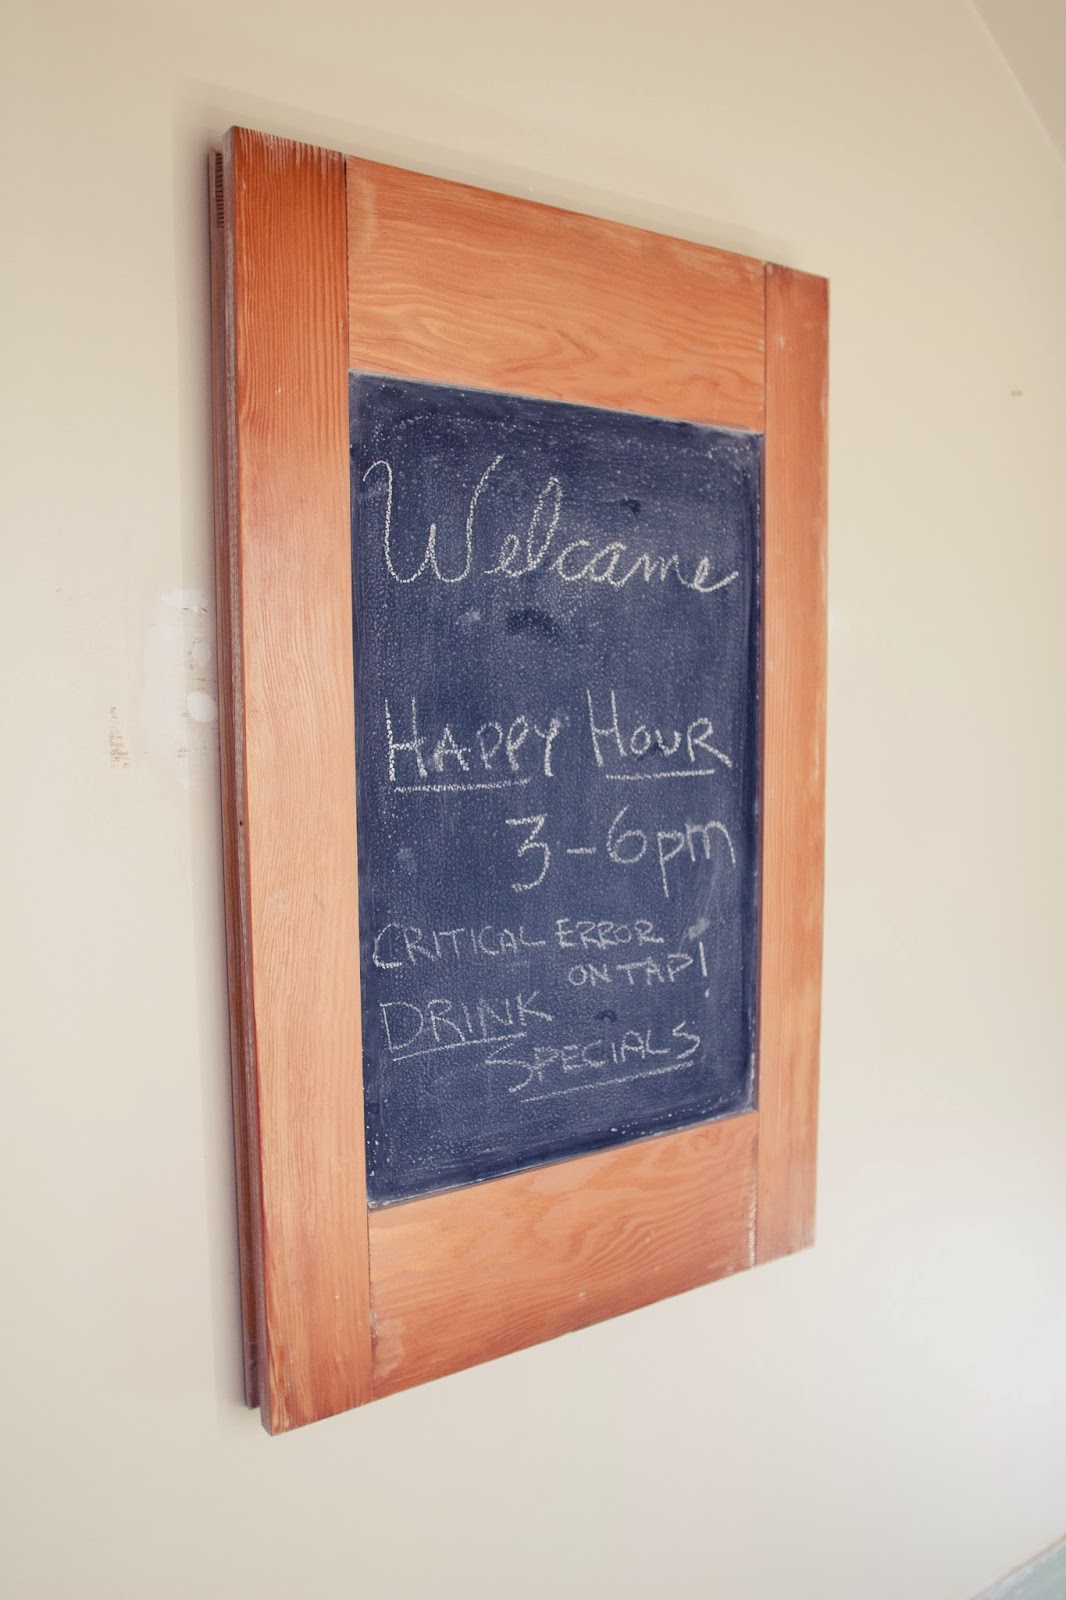 Welcome
HAPPY HOUR
3-6pm
CRITICAL ERROR
ON TAP!
DRINK
SPECIALS